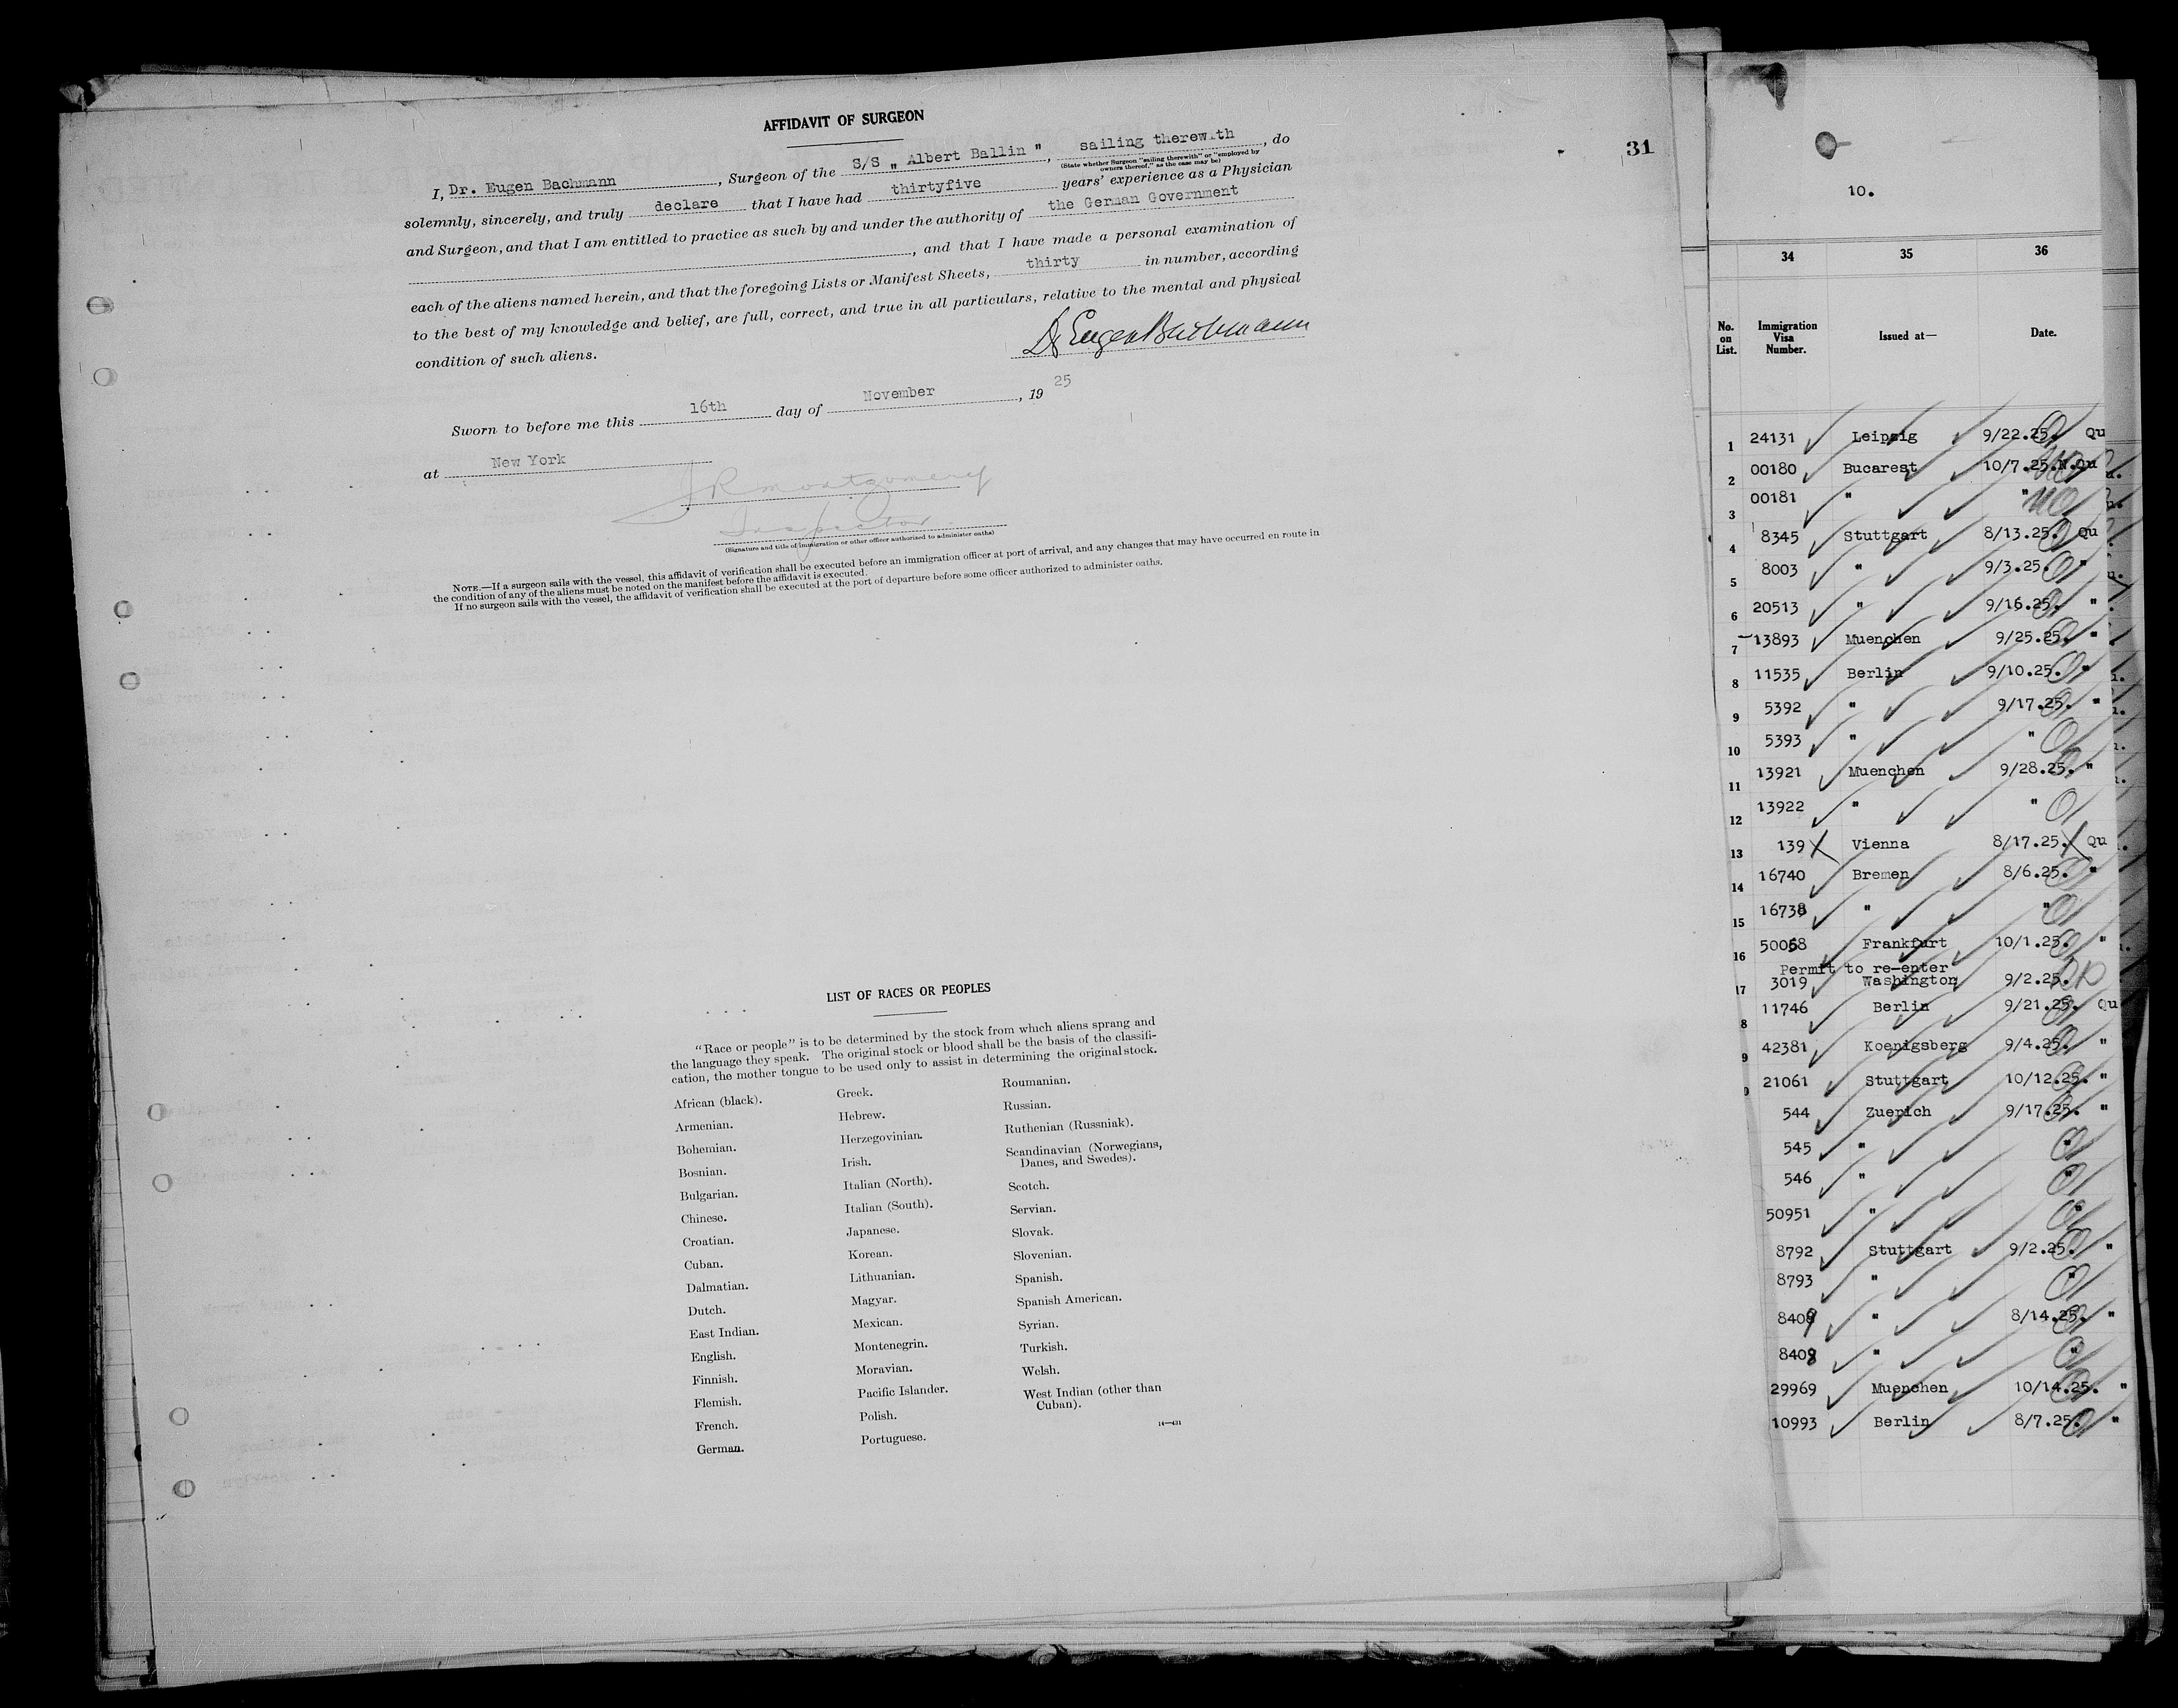 AFFIDAVIT OF SURGEON
31
I, Dr. Eugen Bachmann, Surgeon of the S/S „ Albert Ballin ", sailing therew th, do
(State whether Surgeon "sailing therewith" or "employed by owners thereof," as the case may be)
solemnly, sincerely, and truly declare that I have had thirtyfive years' experience as a Physician
and Surgeon, and that I am entitled to practice as such by and under the authority of the German Government
, and that I have made a personal examination of
each of the aliens named herein, and that the foregoing Lists or Manifest Sheets, thirty in number, according
to the best of my knowledge and belief, are full, correct, and true in all particulars, relative to the mental and physical
condition of such aliens.
Dr Eugen Bachmann
Sworn to before me this 16th day of November, 1925
at New York
J R Montgomery
Inspector
(Signature and title of immigration or other officer authorized to administer oaths)
NOTE.—If a surgeon sails with the vessel, this affidavit of verification shall be executed before an immigration officer at port of arrival, and any changes that may have occurred en route in
the condition of any of the aliens must be noted on the manifest before the affidavit is executed.
If no surgeon sails with the vessel, the affidavit of verification shall be executed at the port of departure before some officer authorized to administer oaths.
LIST OF RACES OR PEOPLES
"Race or people" is to be determined by the stock from which aliens sprang and
the language they speak. The original stock or blood shall be the basis of the classifi-
cation, the mother tongue to be used only to assist in determining the original stock.
African (black).
Armenian.
Bohemian.
Bosnian.
Bulgarian.
Chinese.
Croatian.
Cuban.
Dalmatian.
Dutch.
East Indian.
English.
Finnish.
Flemish.
French.
German.
Greek.
Hebrew.
Herzegovinian.
Irish.
Italian (North).
Italian (South).
Japanese.
Korean.
Lithuanian.
Magyar.
Mexican.
Montenegrin.
Moravian.
Pacific Islander.
Polish.
Portuguese.
Roumanian.
Russian.
Ruthenian (Russniak).
Scandinavian (Norwegians,
Danes, and Swedes).
Scotch.
Servian.
Slovak.
Slovenian.
Spanish.
Spanish American.
Syrian.
Turkish.
Welsh.
West Indian (other than
Cuban).
14—431
10.
34 35 36
No. on List. Immigration Visa Number. Issued at— Date.
1 24131 Leipzig 9/22.25. Qu
2 00180 Bucarest 10/7.25.N.Qu
3 00181 " "
4 8345 Stuttgart 8/13.25. Qu
5 8003 " 9/3.25. "
6 20513 " 9/16.25. "
7 13893 Muenchen 9/25.25. "
8 11535 Berlin 9/10.25. "
9 5392 " 9/17.25. "
10 5393 " "
11 13921 Muenchen 9/28.25. "
12 13922 " "
13 139 Vienna 8/17.25. Qu
14 16740 Bremen 8/6.25. "
15 16738 " "
16 50058 Frankfurt 10/1.25. "
Permit to re-enter
17 3019 Washington 9/2.25.
8 11746 Berlin 9/21.25. Qu
9 42381 Koenigsberg 9/4.25. "
0 21061 Stuttgart 10/12.25. "
544 Zuerich 9/17.25. "
545 " "
546 " "
50951 " "
8792 Stuttgart 9/2.25. "
8793 " "
8409 " 8/14.25. "
8408 " "
29969 Muenchen 10/14.25. "
10993 Berlin 8/7.25. "